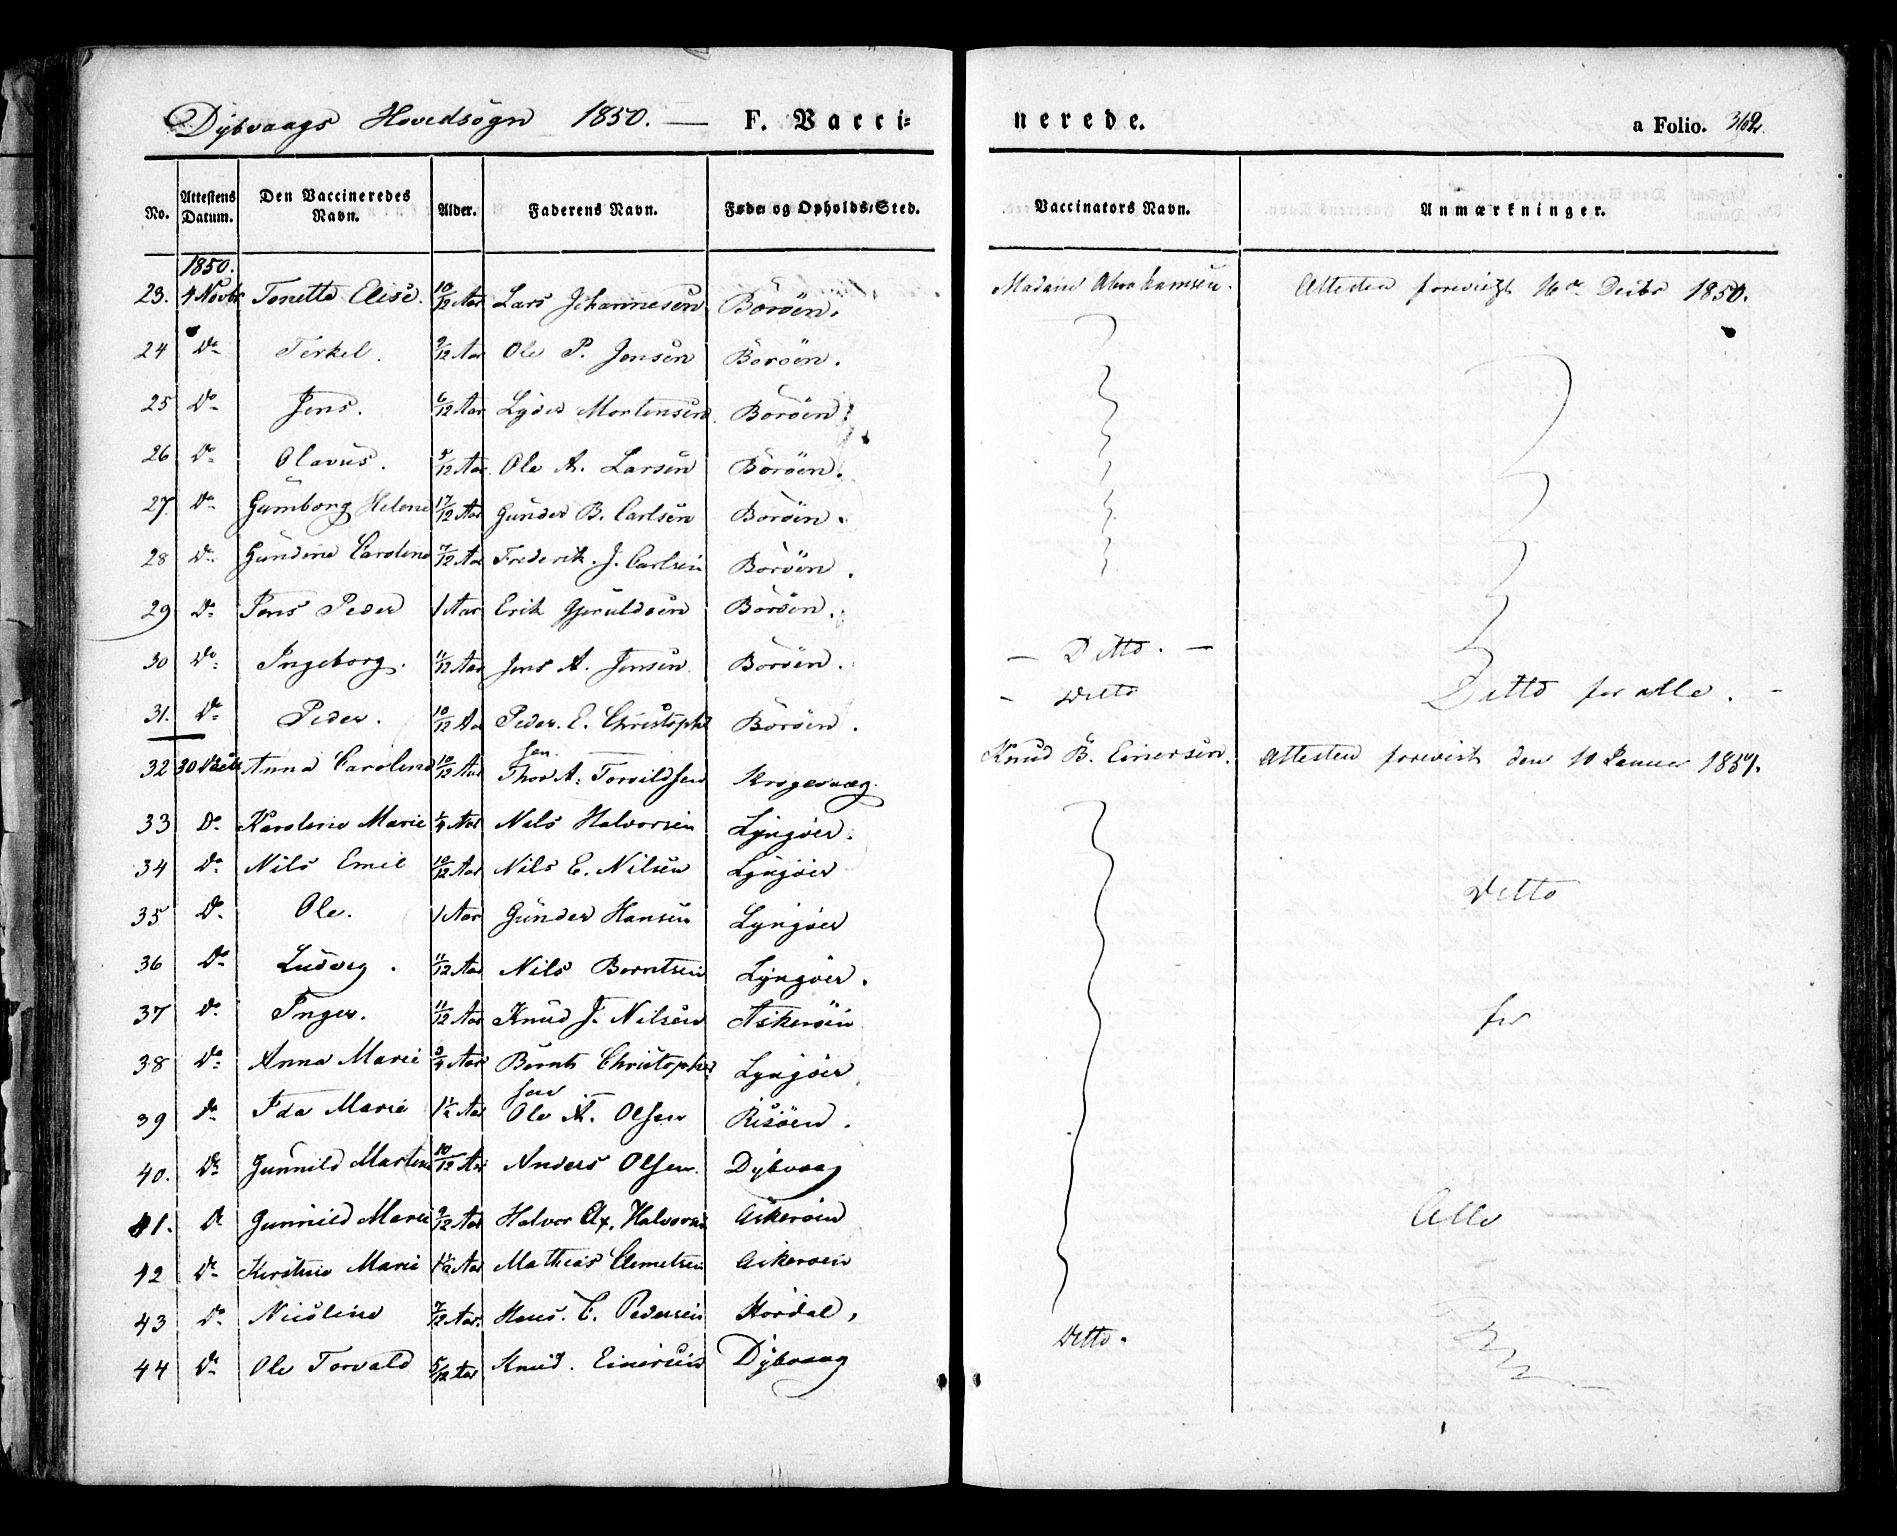 Dybvaags Hovedsogn 1850. — F. Vacci= nerede. a Folio. 362.
No. Attestens Datum. Den Vaccineredes Navn. Alder. Faderens Navn. Føde- og Opholds-Sted. Vaccinators Navn. Anmærkninger.
1850.
23. 4 Novbr Tonette Elise. 10/12 Aar Lars Johannesen Boröen. Madame Abrahamsen. Attesten foreviist 16de Decbr 1850.
24 Do Terkel. 9/12 Aar Ole P. Jensen Boröen.
25 Do Jens. 6/12 Aar Lyder Mortensen Boröen.
26 Do Olavus. 5/12 Aar Ole A. Larsen Boröen.
27. Do Gumborg Helene 17/12 Aar Gunder B. Carlsen Boröen.
28 Do Gundine Caroline 7/12 Aar Frederik. J. Carlsen Boröen.
29 Do Jens Peder 1 Aar Erik Gjeruldsen Boröen.
30 Do Ingeborg. 11/12 Aar Jens A. Jensen Boröen. — Ditto. —
31. Do Peder. 10/12 Aar Peder. E. Christophersen Boröen. - Ditto Ditto for alle. -
32 30 Decbr Anna Caroline 10/12 Aar Thor A. Torvildsen Krogevaag. Knud B. Einersen. Attesten forevist den 10 Januar 1851.
33 Do Karoline Marie 1/4 Aar Nils Halvorsen Lyngöer.
34 Do Nils Emil 10/12 Aar Nils E. Nilsen Lyngöer
35 Do Ole. 1 Aar Gunder Hansen Lyngöer Ditto
36 Do Ludvig. 11/12 Aar Nils Berntsen Lyngöer.
37 Do Inger. 11/12 Aar Knud J. Nilsen Askeröen for
38 Do Anna Marie 3/4 Aar Bernt Christophersen Lyngöer
39 Do Ida Marie 1 1/2 Aar Ole A. Olsen Risöen.
40. Do Gunnild Martine 10/12 Aar Anders Olsen. Dybvaag
41. Do Gunnild Marie 9/12 Aar Halvor Ax. Halvorsen Askeröen Alle
42 Do Kirstine Marie 1 1/2 Aar Mathias Clemetsen Askeröen
43 Do Nicoline 7/12 Aar. Hans. C. Pedersen Hordal,
44 Do Ole Torvald 5/12 Aar Knud. Einersen Dybvaag Ditto.